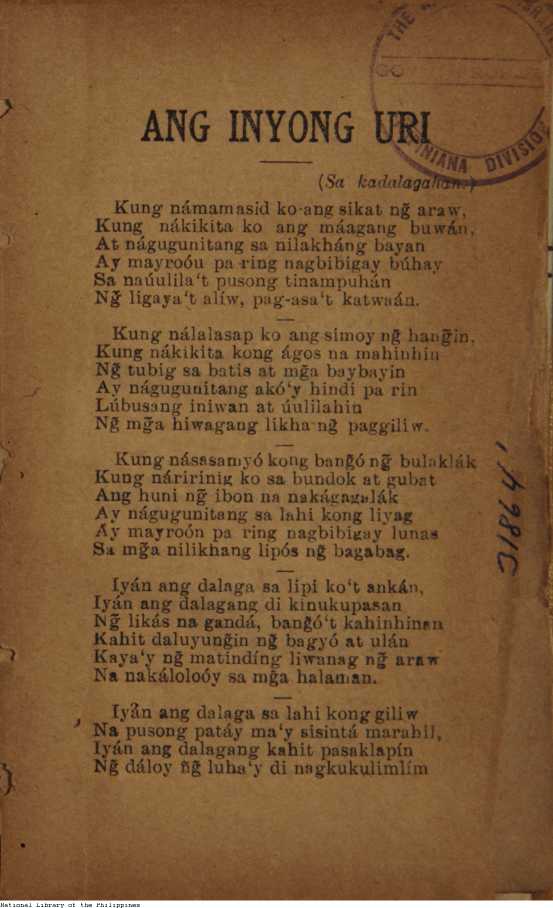 ANG INYONG URI
(Sa kadalagahan.)
Kung námamasid ko ang sikat ng̃ araw,
Kung nákikita ko ang máagang buwán,
At nágugunitang sa nilakháng bayan
Ay mayroóu pa ring nagbibigay búhay
Sa naúulila't pusong tinampuhán
Ng̃ ligaya't alíw, pag-asa't katwaán.
Kung nálalasap ko ang simoy ng̃ hang̃in,
Kung nákikita kong ágos na mahinhin
Ng̃ tubig sa batis at mg̃a baybayin
Ay nágugunitang akó'y hindi pa rin
Lúbusang iniwan at úulilahin
Ng̃ mg̃a hiwagang likha ng̃ paggiliw.
Kung násasamyó kong bang̃ó ng̃ bulaklák
Kung náririnig ko sa bundok at gubat
Ang huni ng̃ ibon na nakágagalák
Ay nágugunitang sa lahi kong liyag
Ay mayroón pa ring nagbibigay lunas
Sa mg̃a nilikhang lipós ng̃ bagabag.
Iyán ang dalaga sa lipi ko't ankán,
Iyán ang dalagang di kinukupasan
Ng̃ likás na gandá, bang̃ó't kahinhinan
Kahit daluyung̃in ng̃ bagyó at ulán
Kaya'y ng̃ matindíng liwanag ng̃ araw
Na nakáloloóy sa mg̃a halaman.
Iyán ang dalaga sa lahi kong giliw
Na pusong patáy ma'y sisintá marahil,
Iyán ang dalagang kahit pasaklapín
Ng̃ dáloy ng̃ luha'y di nagkukulimlím
National Library of the Philippines